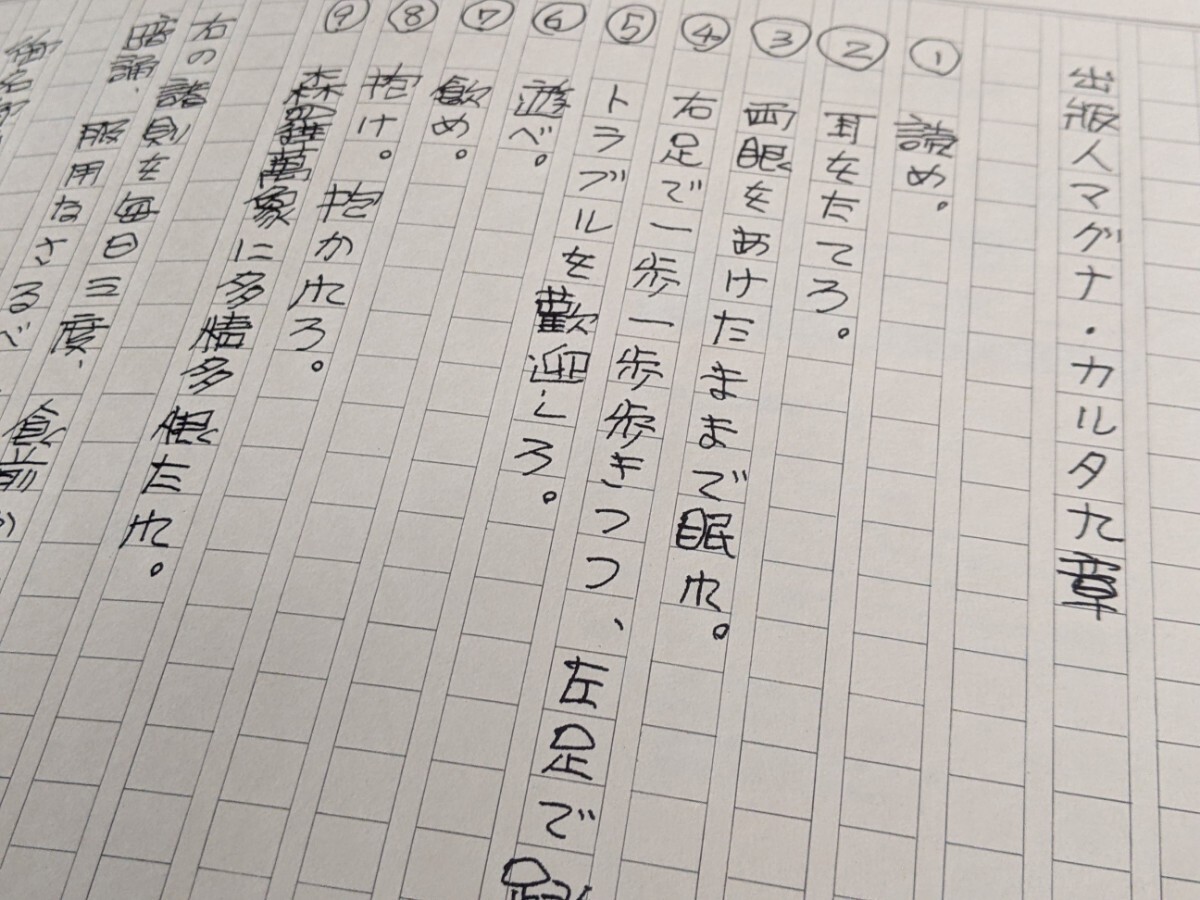 出版人マグナ・カルタ九章
① 読め。
② 耳をたてろ。
③ 両眼をあけたままで眠れ。
④ 右足で一歩一歩歩きつつ、左足で
⑤ トラブルを歓迎しろ。
⑥ 遊べ。
⑦ 飲め。
⑧ 抱け。抱かれろ。
⑨ 森羅萬象に多情多恨たれ。
右の諸則を毎日三度、
暗誦、服用なさるべ
食前